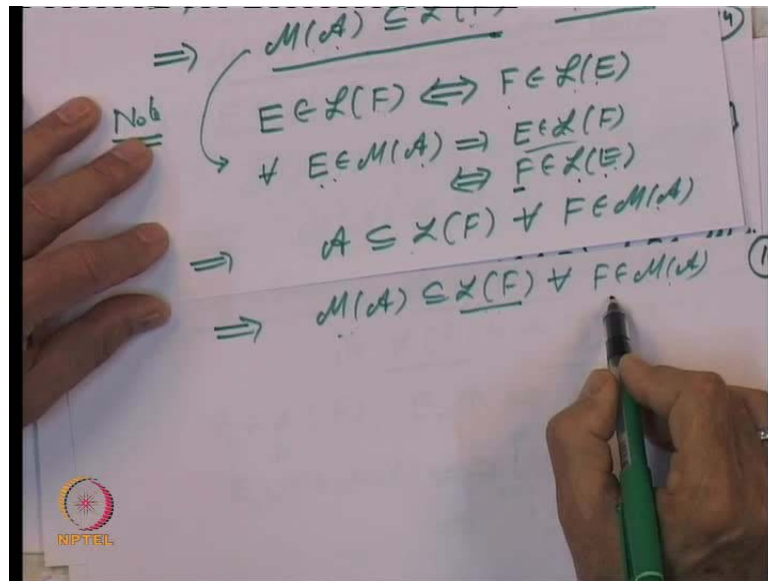 ⇒ M(A) ⊆ L(F)
Note E ∈ L(F) ⇔ F ∈ L(E)
∀ E ∈ M(A) ⇒ E ∈ L(F)
⇔ F ∈ L(E)
⇒ A ⊆ L(F) ∀ F ∈ M(A)
⇒ M(A) ⊆ L(F) ∀ F ∈ M(A)
NPTEL